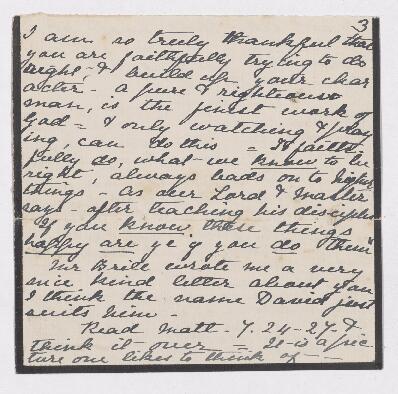 3
I am so truly thankful that
you are faithfully trying to do
right, & build up your char
acter - a pure & righteous
man, is the finest work of
God = & only watching & pray
ing, can do this = To faith-
fully do, what we know to be
right, always leads on to higher
things - As our Lord & Master
says - after teaching his disciples
"If you know these things
happy are ye if you do them"
Mr Brill wrote me a very
nice kind letter about you
I think the name David just
suits him -
Read Matt - 7. 24-27 - &
think it over = It is a pic
ture one likes to think of - -